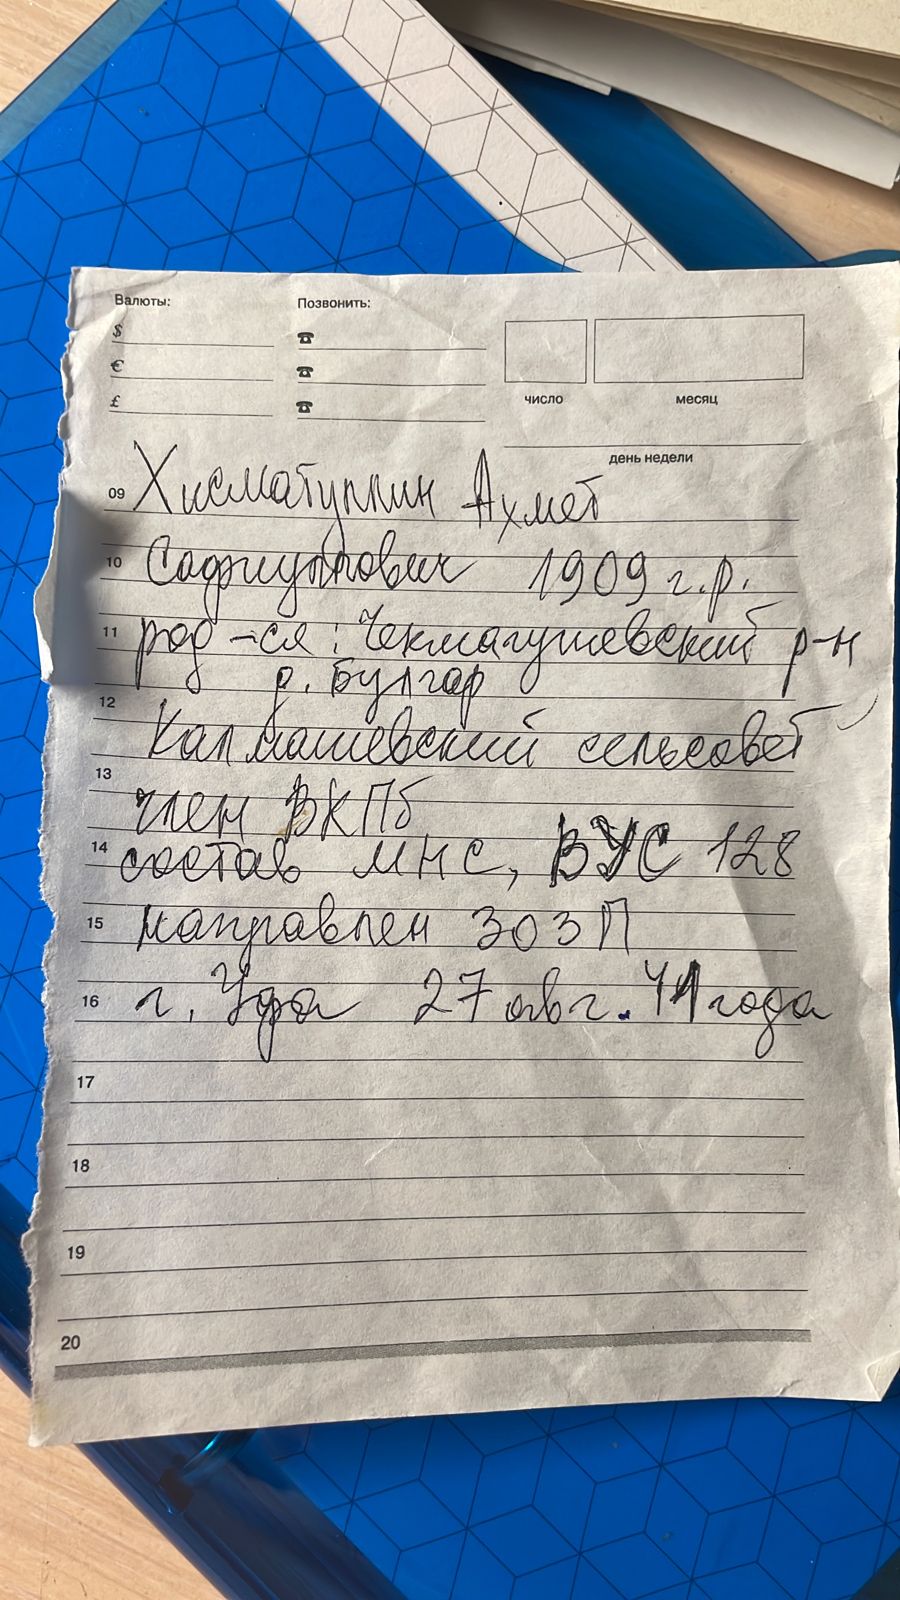 Валюты: Позвонить:
$
€
£
число месяц
день недели
09 Хисматуллин Ахмет
10 Садриуллович 1909 г.р.
11 род-ся: Чекмагушевский р-н
д. Булгар
12 Калмашевский сельсовет
13 член ВКПб
14 состав МНС, ВУС 128
15 направлен 303П
16 г. Уфа 27 авг. 41 года
17
18
19
20